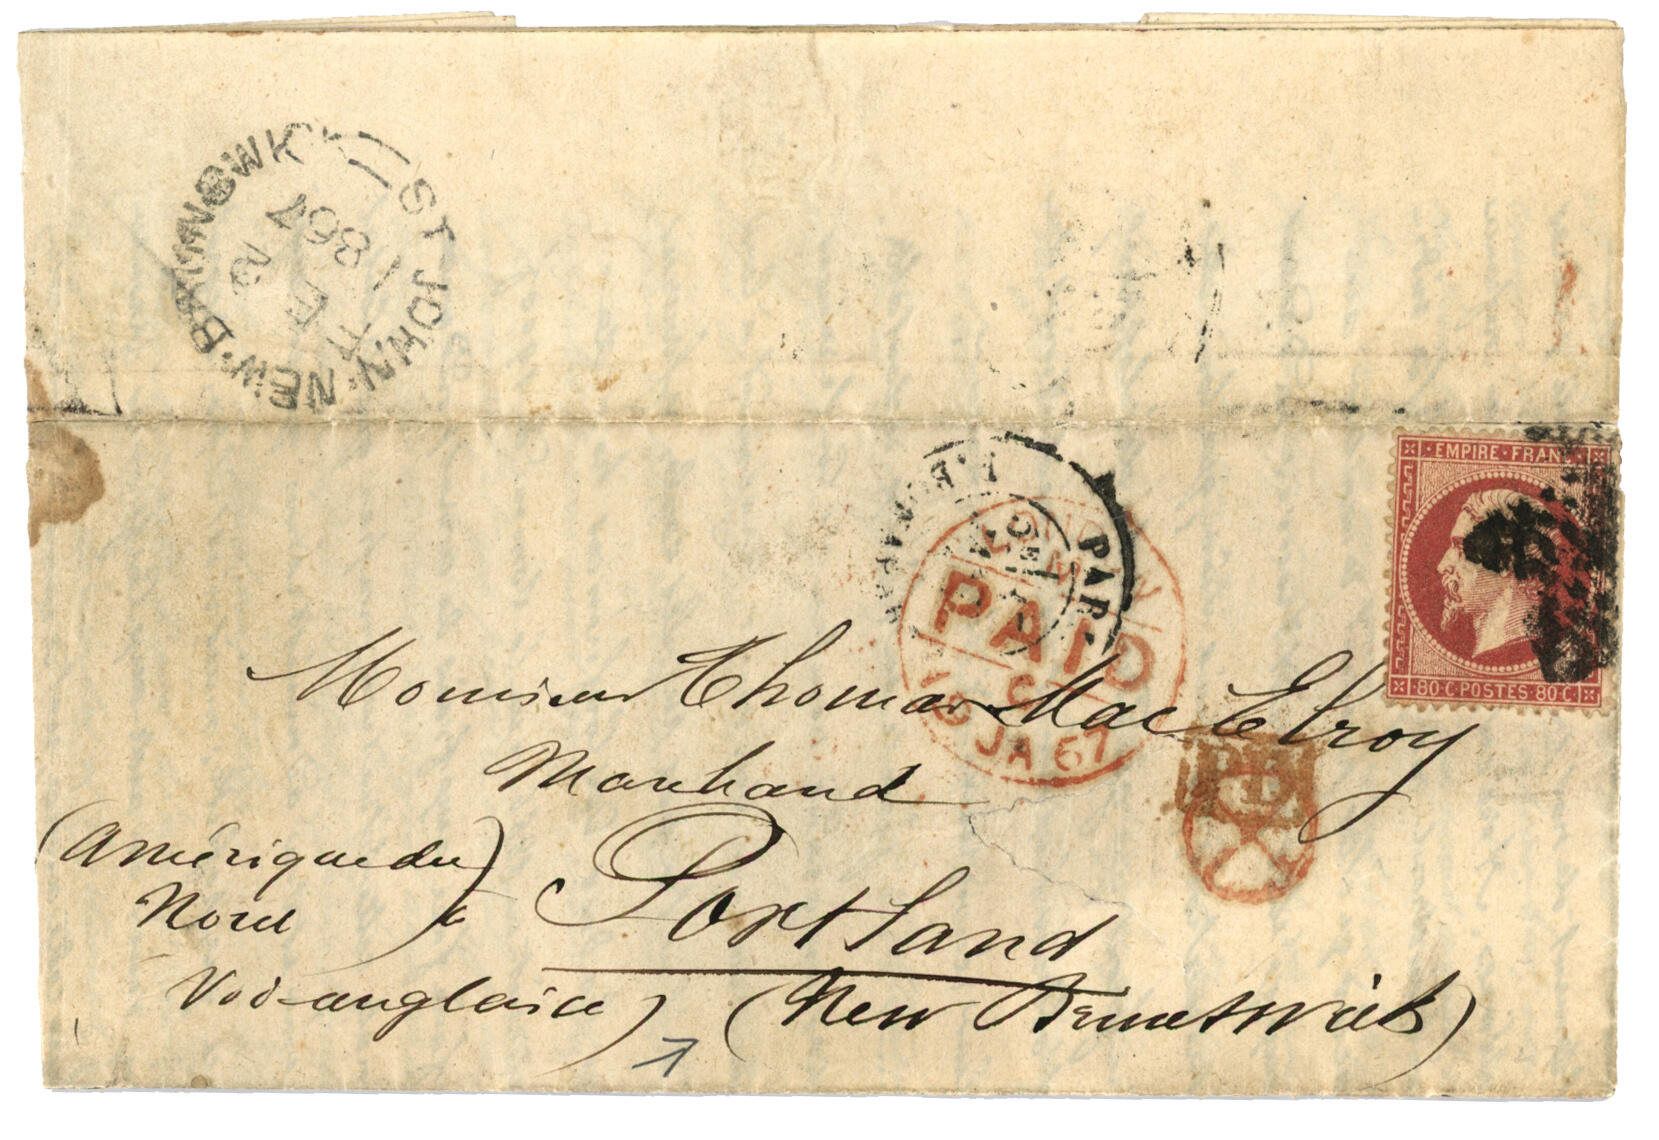 ST JOHN. NEW. BRUNSWK
FE
1867
PAR
LONDON
PAID
JA 67
EMPIRE FRANC
80 C POSTES 80 C
P.D.
Monsieur Thomas Mac Elroy
Marchand
(Amérique du) à Portland
Nord
Voie anglaise) (New Brunswick)